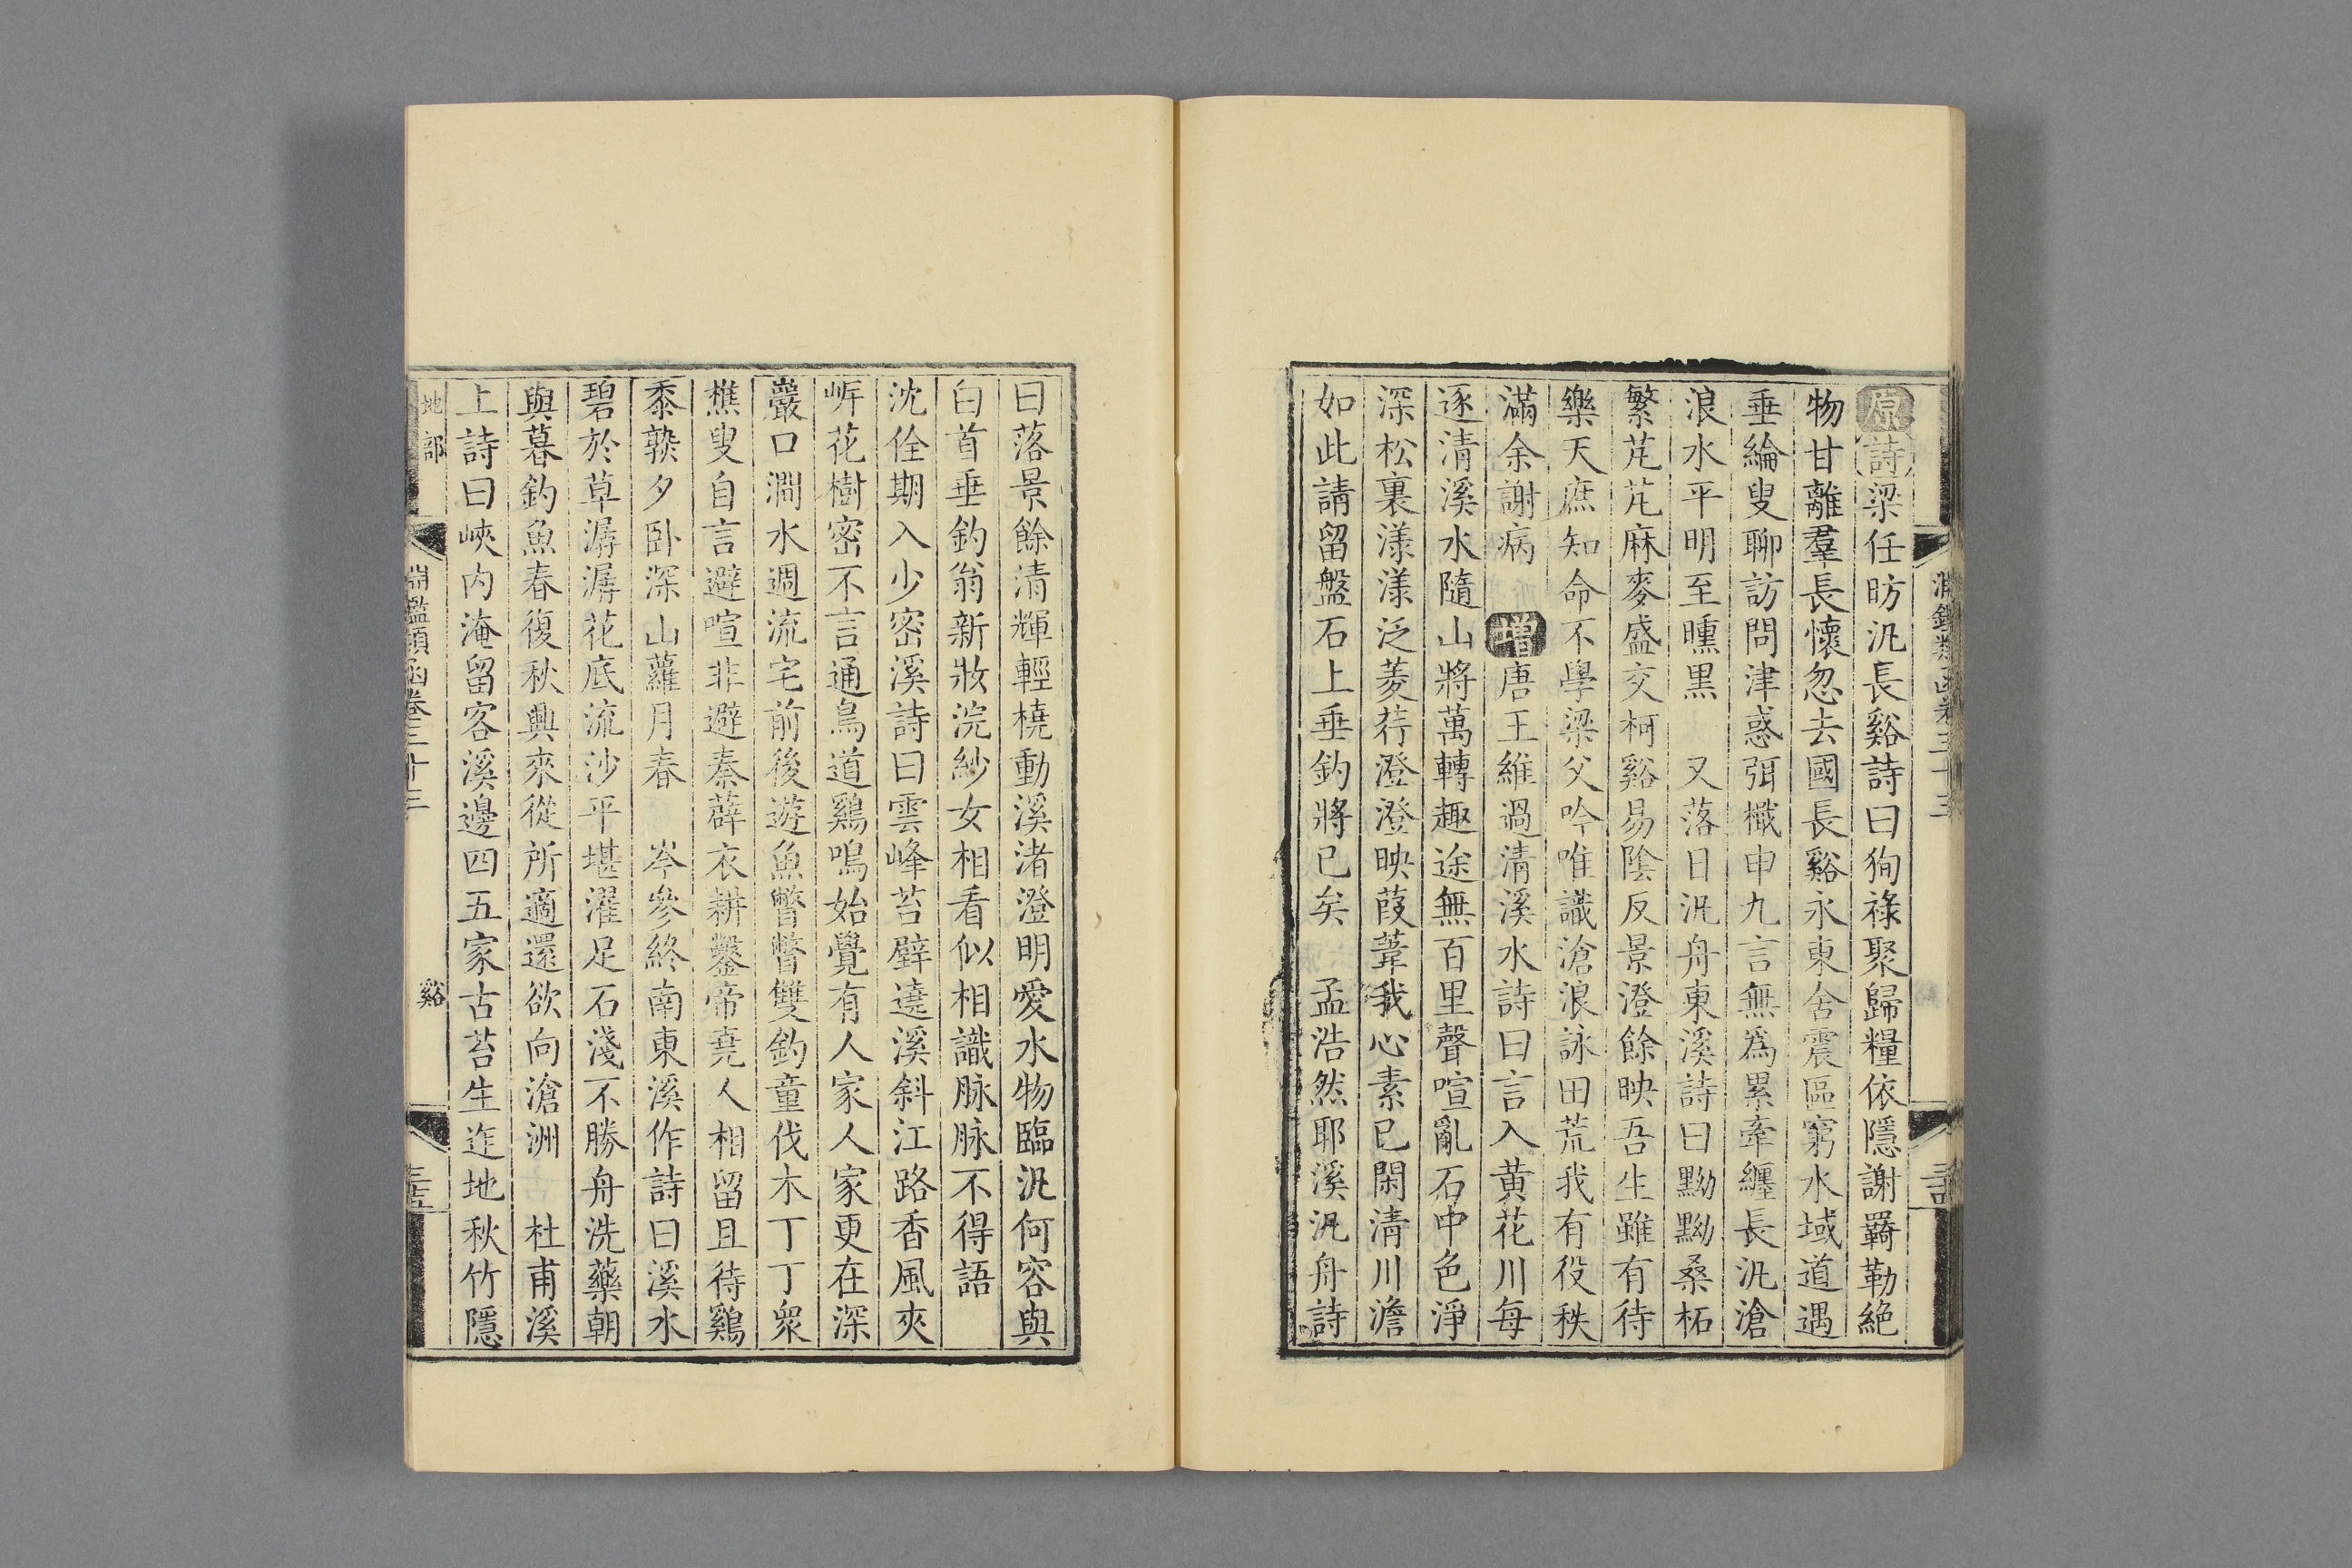 原詩梁任昉汎長谿詩曰徇祿聚歸糧依隱謝羇勒絶
物甘離羣長懷忽去國長谿永東舍震區窮水域道遇
垂綸叟聊訪問津惑弭檝申九言無為累牽纏長汎滄
浪水平明至曛黒　又落日汎舟東溪詩曰黝黝桑柘
繁芃芃麻麥盛交柯谿易陰反景澄餘映吾生雖有待
樂天庶知命不學梁父吟唯識滄浪詠田荒我有役秩
滿余謝病　增唐王維過清溪水詩曰言入黄花川每
逐清溪水隨山將萬轉趣途無百里聲喧亂石中色淨
深松裏漾漾泛菱荇澄澄映葭葦我心素已閑清川澹
如此請留盤石上垂釣將已矣　孟浩然耶溪汎舟詩
曰落景餘清輝輕橈動溪渚澄明愛水物臨汎何容與
白首垂釣翁新妝浣紗女相看似相識脉脉不得語
沈佺期入少密溪詩曰雲峰苔壁遶溪斜江路香風夾
岍花樹密不言通鳥道鷄鳴始覺有人家人家更在深
巖口澗水週流宅前後遊魚瞥瞥雙釣童伐木丁丁衆
樵叟自言避喧非避秦薜衣耕鑿帝堯人相留且待鷄
黍孰夕卧深山蘿月春　岑參終南東溪作詩曰溪水
碧於草潺潺花底流沙平堪濯足石淺不勝舟洗藥朝
與暮釣魚春復秋興來從所適還欲向滄洲　杜甫溪
上詩曰峽内淹留客溪邊四五家古苔生迮地秋竹隱
地部　淵鑑類函卷三十三　谿